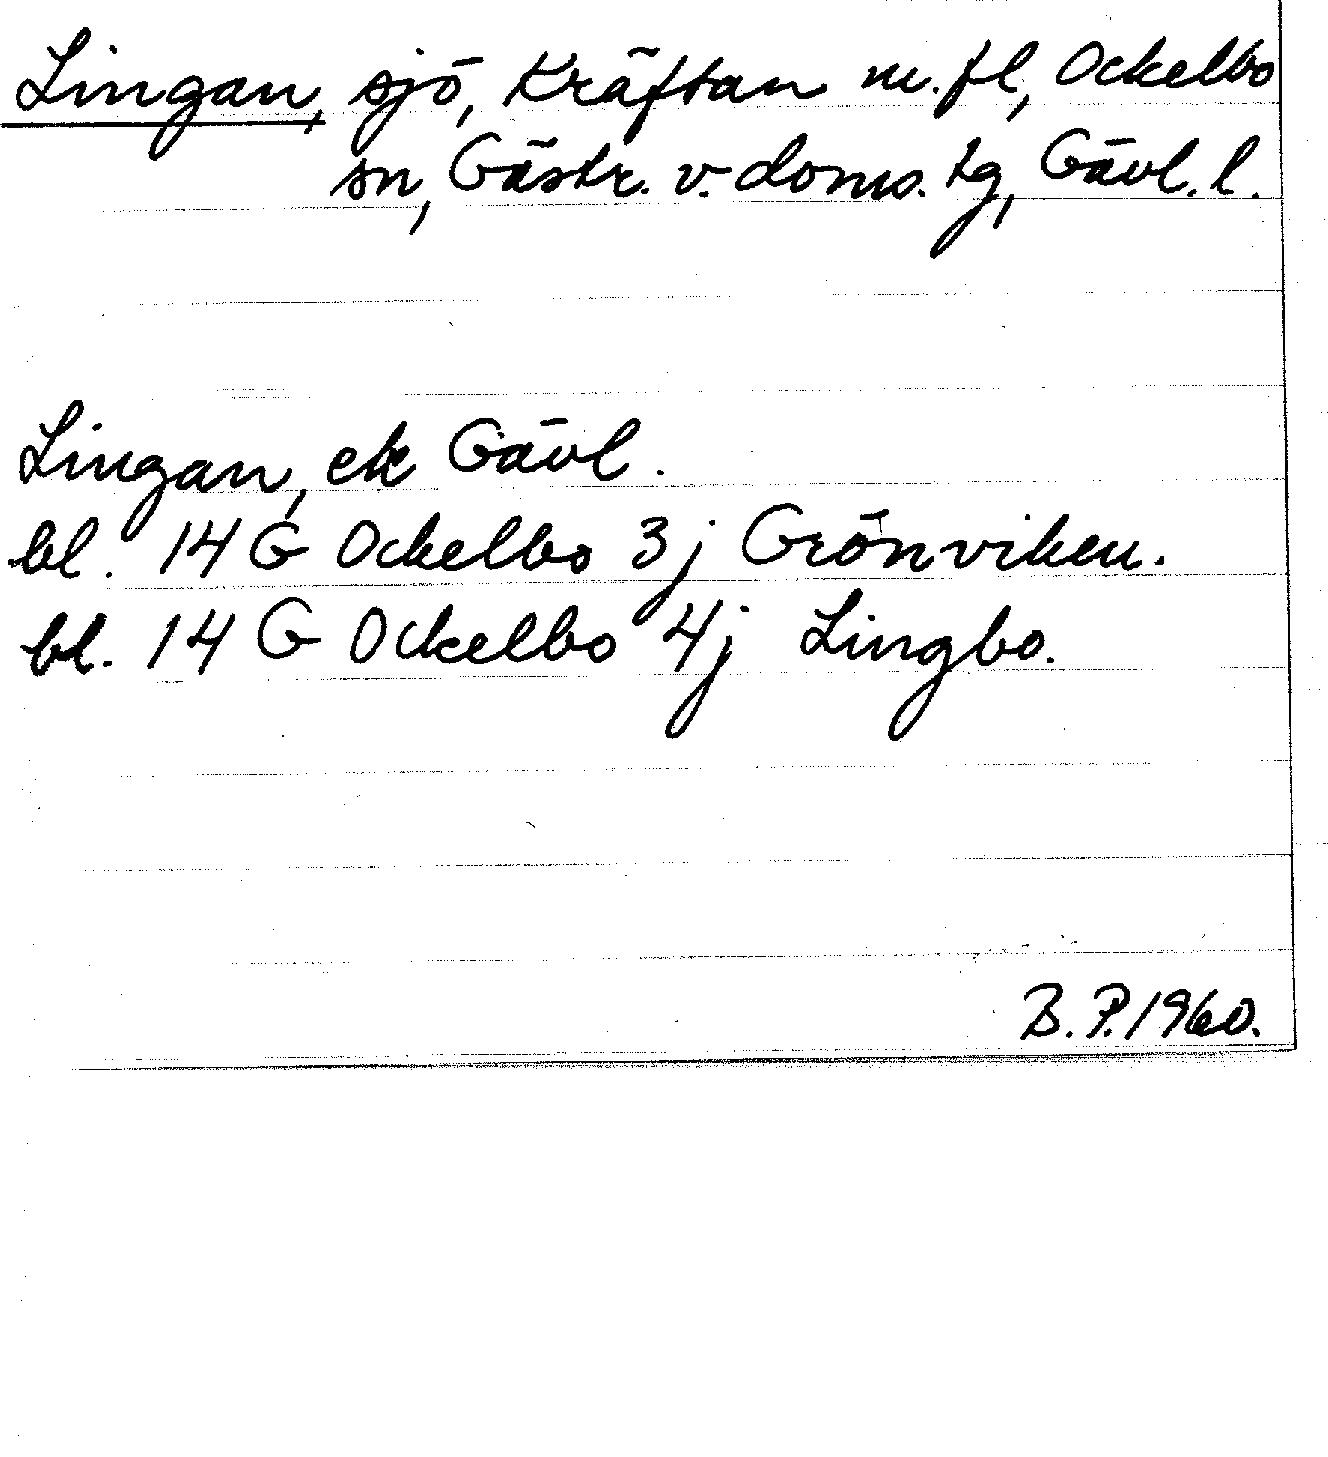 Lingan, sjö, Kräftan m.fl, Ockelbo
sn, Gästr. v. doms. tg, Gävl. l.
Lingan, ek Gävl.
bl. 14 G Ockelbo 3j Grönviken.
bl. 14 G Ockelbo 4j Lingbo.
B.P. 1960.